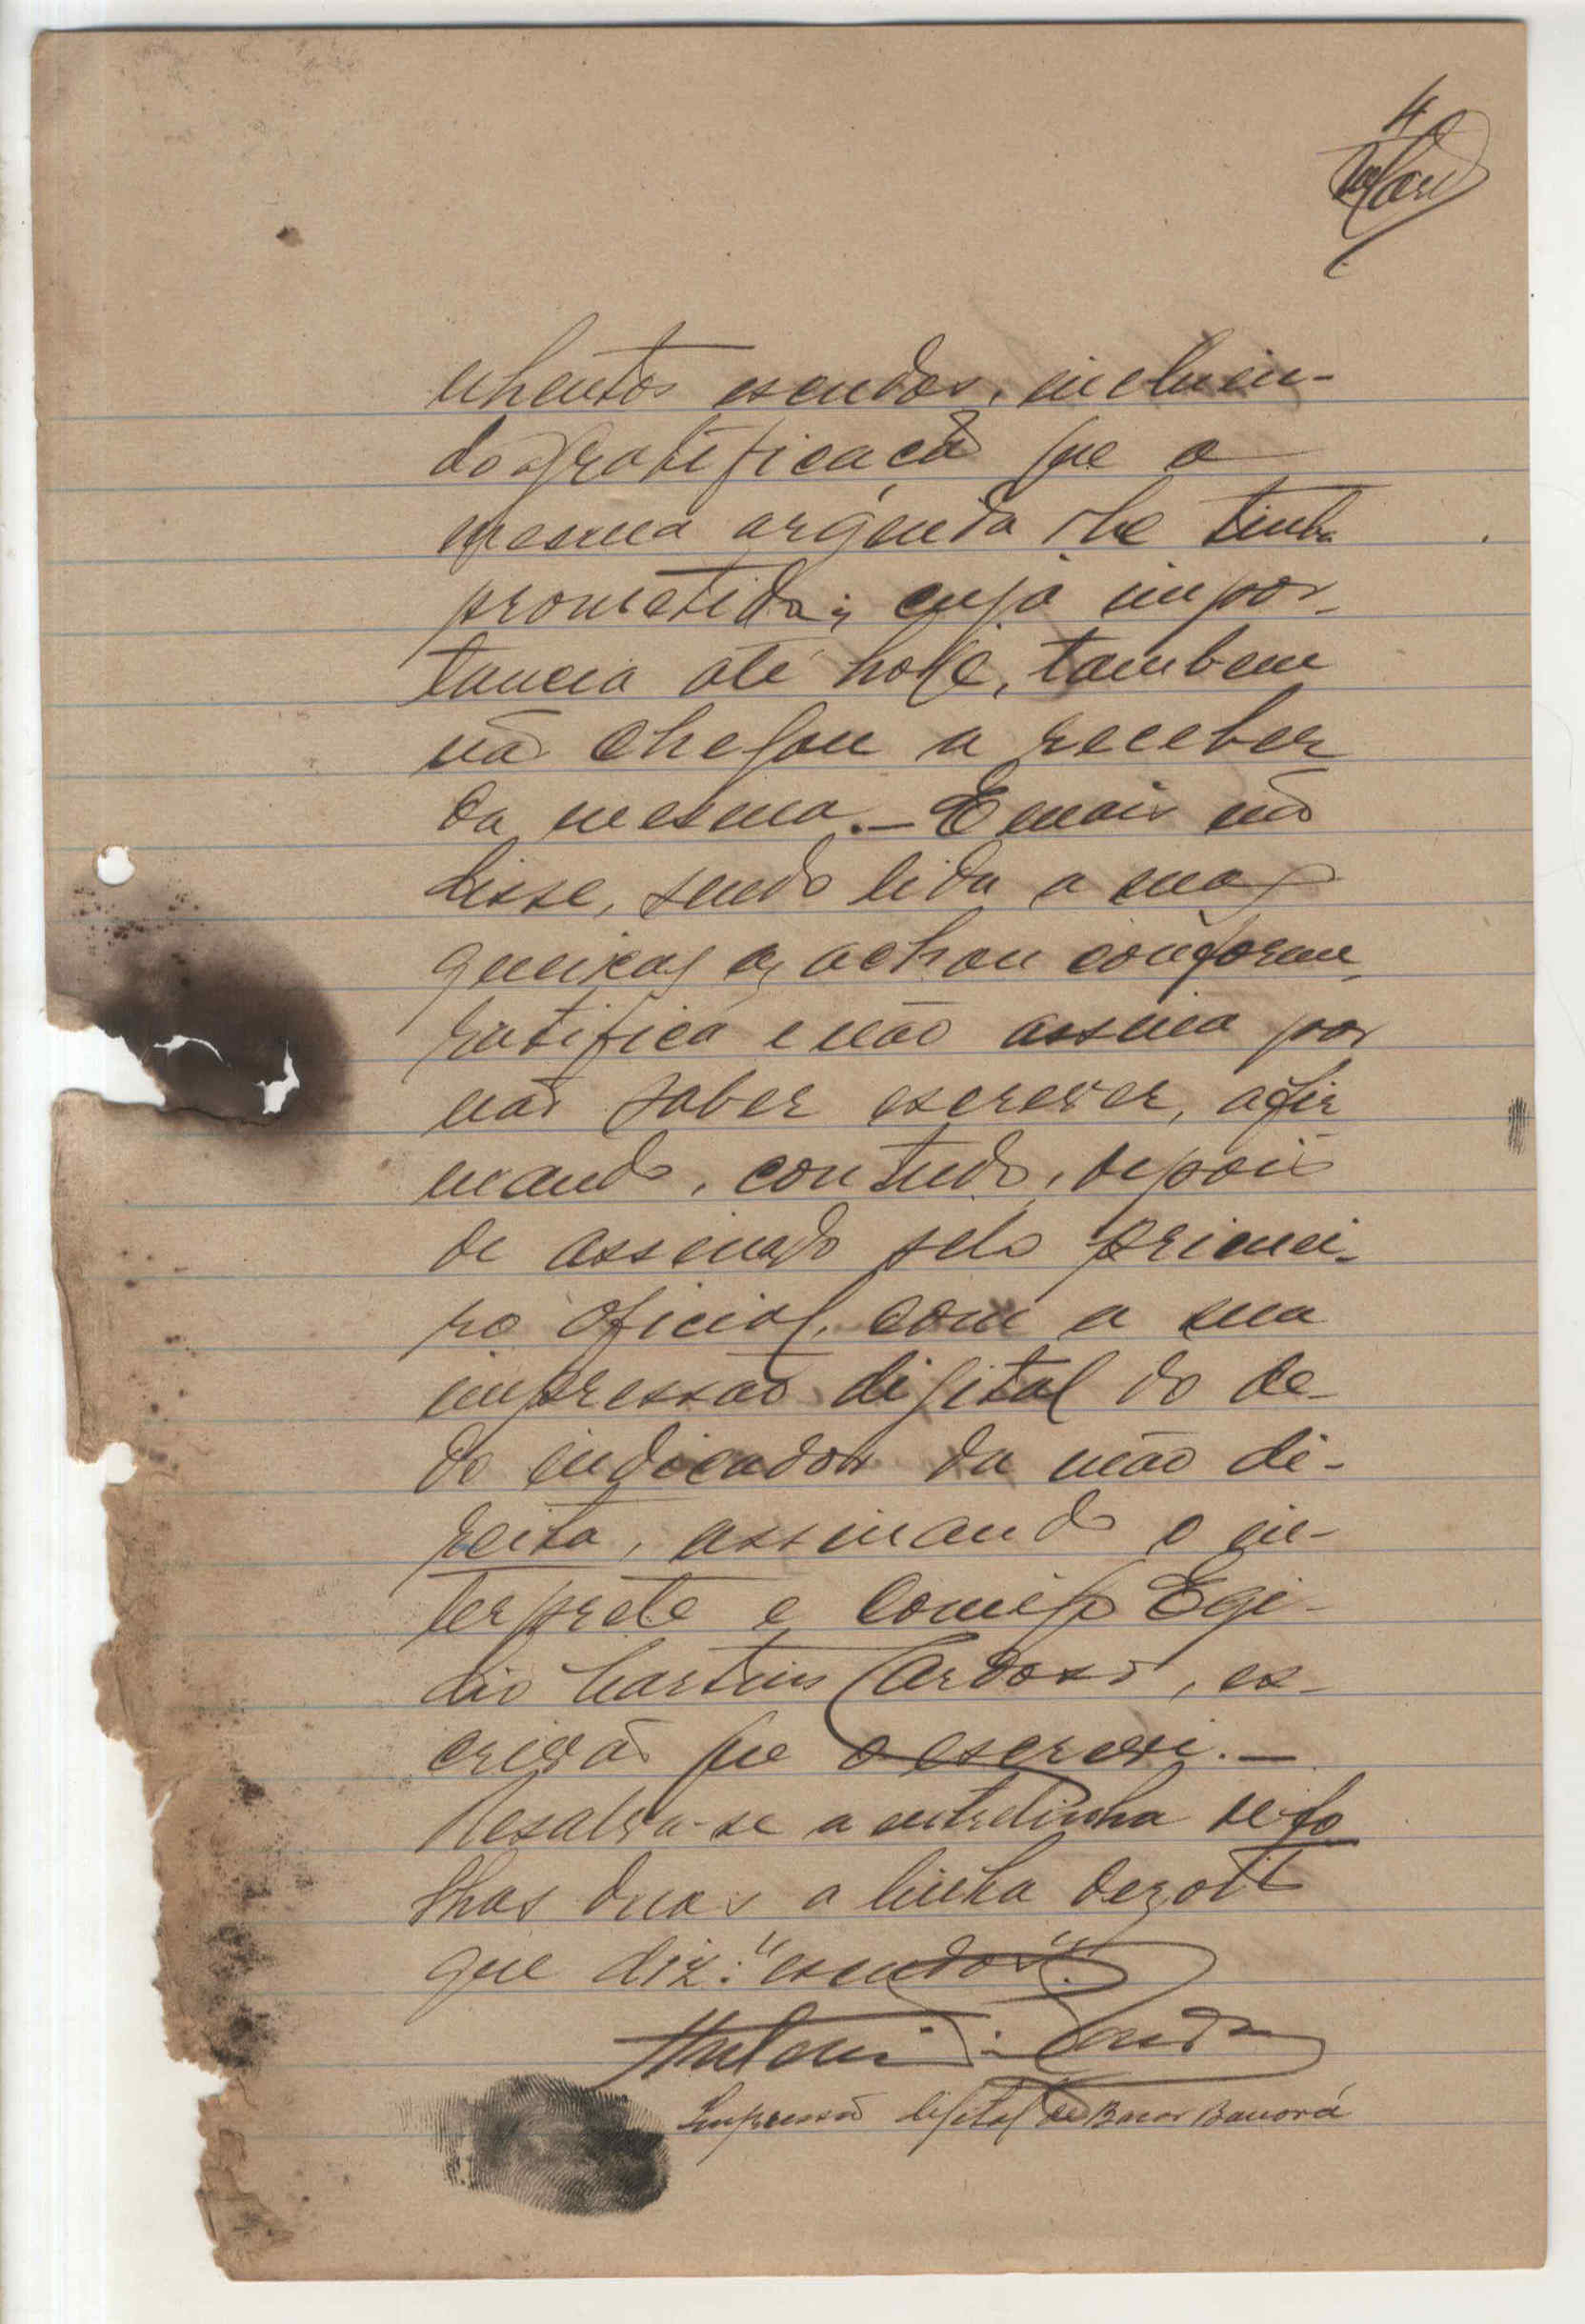 4
nhentos escudos, incluin-
do a gratificacão que a
mesma arguida lhe tinha
prometida; cuja impor-
tancia até hoje, tambem
não chegou a receber
da mesma.— E mais não
disse, sendo lida a sua
queixa, a achou conforme,
ratifica e não assina por
não saber escrever, afir
mando, contudo, depois
de assinado pelo primei-
ro oficial, com a sua
impressão digital do de-
do indicador da mão di-
reita, assinando o in-
terprete e comigo Egi-
dio Martins Cardoso, es-
crivão que o escrevi.—
Resalva-se a entrelinha de fo
lhas duas a linha dezoito
que diz: "escudos".
Impressão digital de Bacar Banorá